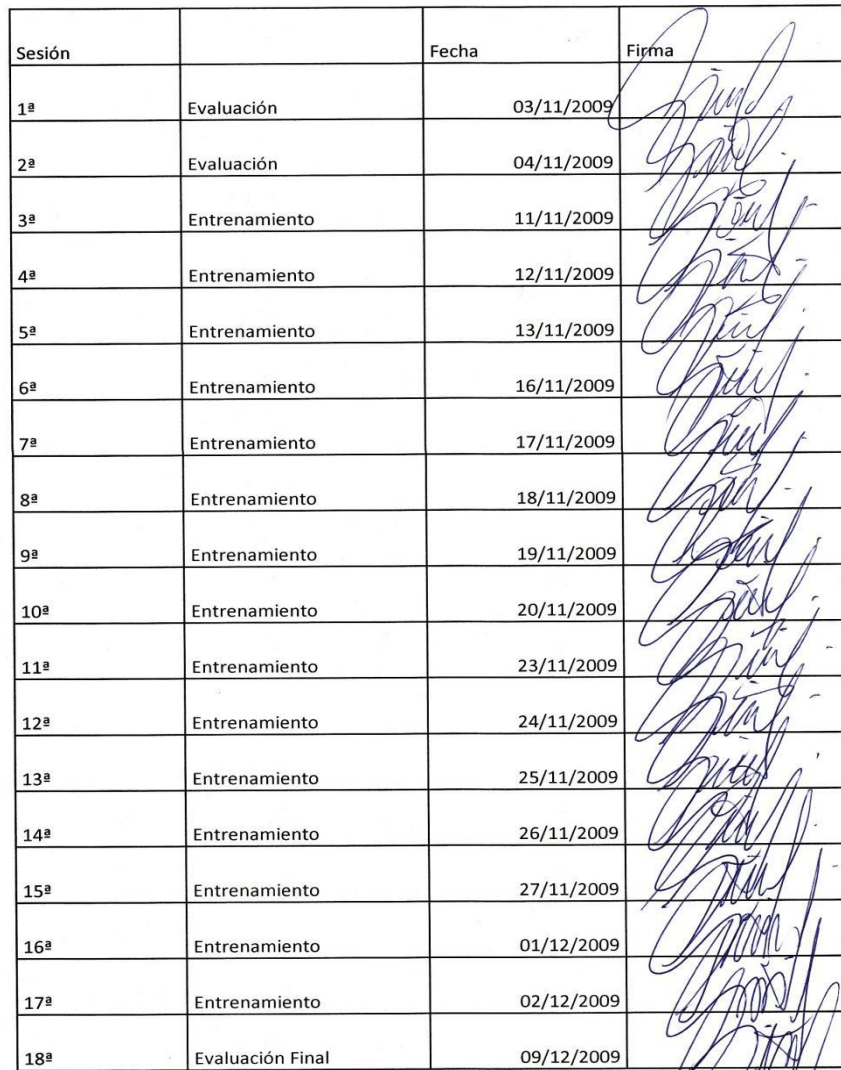 Sesión Fecha Firma
1ª Evaluación 03/11/2009
2ª Evaluación 04/11/2009
3ª Entrenamiento 11/11/2009
4ª Entrenamiento 12/11/2009
5ª Entrenamiento 13/11/2009
6ª Entrenamiento 16/11/2009
7ª Entrenamiento 17/11/2009
8ª Entrenamiento 18/11/2009
9ª Entrenamiento 19/11/2009
10ª Entrenamiento 20/11/2009
11ª Entrenamiento 23/11/2009
12ª Entrenamiento 24/11/2009
13ª Entrenamiento 25/11/2009
14ª Entrenamiento 26/11/2009
15ª Entrenamiento 27/11/2009
16ª Entrenamiento 01/12/2009
17ª Entrenamiento 02/12/2009
18ª Evaluación Final 09/12/2009